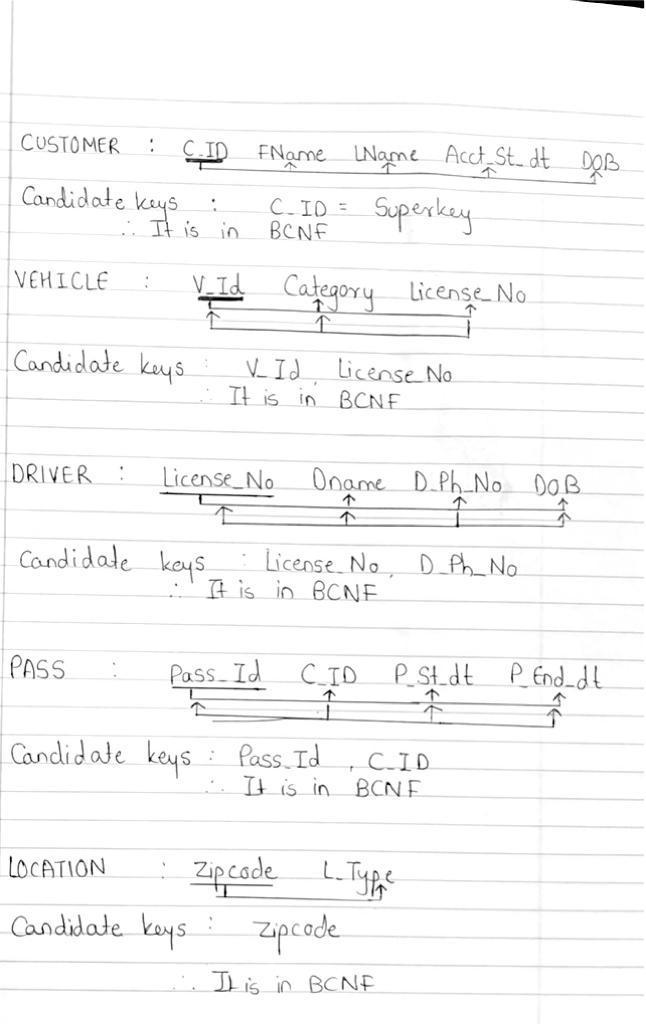 CUSTOMER : C_ID FName LName Acct_St_dt DOB
Candidate keys : C_ID = Superkey
∴ It is in BCNF
VEHICLE : V_Id Category License_No
Candidate keys : V_Id, License_No
∴ It is in BCNF
DRIVER : License_No Dname D_Ph_No DOB
Candidate keys : License_No, D_Ph_No
∴ It is in BCNF
PASS : Pass_Id C_ID P_St_dt P_End_dt
Candidate keys : Pass_Id, C_ID
∴ It is in BCNF
LOCATION : Zipcode L_Type
Candidate keys : Zipcode
∴ It is in BCNF